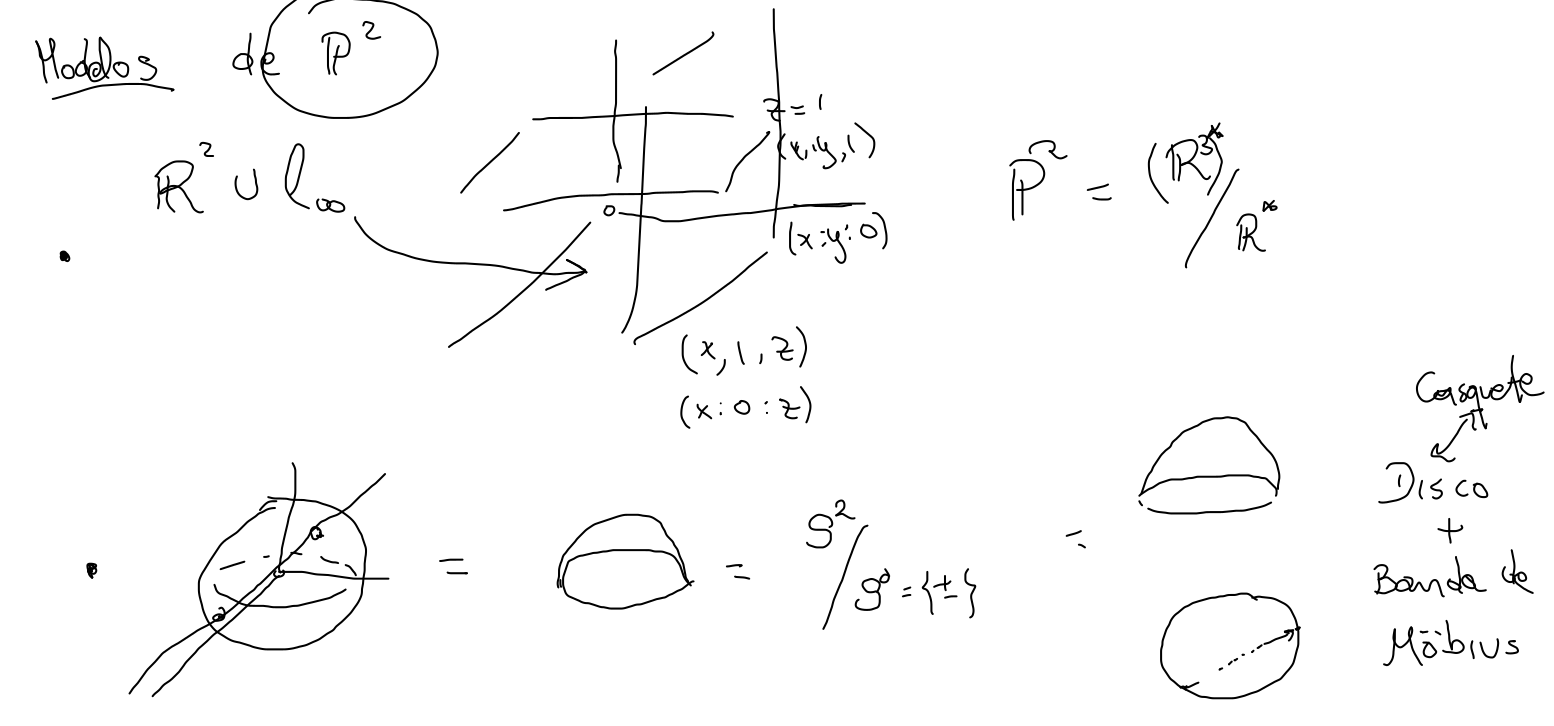 Modelos de ℙ²
ℝ² ∪ l∞
z = 1
(x, y, 1)
(x : y : 0)
ℙ² = (ℝ³)* / ℝ*
(x, 1, z)
(x : 0 : z)
= = S² / S⁰ = {±} =
Casquete
Disco
+
Banda de
Möbius